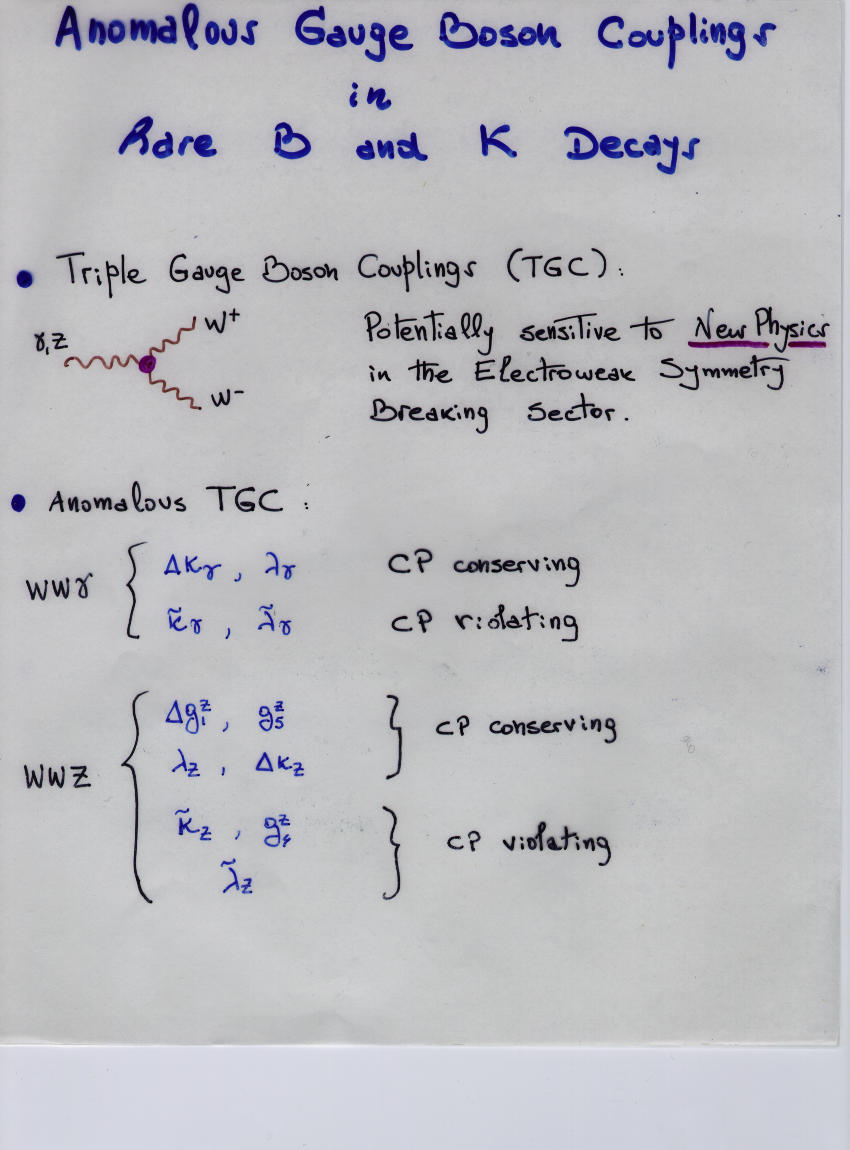 Anomalous Gauge Boson Couplings
in
Rare B and K Decays
• Triple Gauge Boson Couplings (TGC):
γ, Z
W⁺
W⁻
Potentially sensitive to New Physics
in the Electroweak Symmetry
Breaking Sector.
• Anomalous TGC :
WWγ { Δκ_γ , λ_γ CP conserving
κ̃_γ , λ̃_γ CP violating
WWZ { Δg₁^Z , g₅^Z
λ_Z , Δκ_Z } CP conserving
κ̃_Z , g₄^Z
λ̃_Z } CP violating